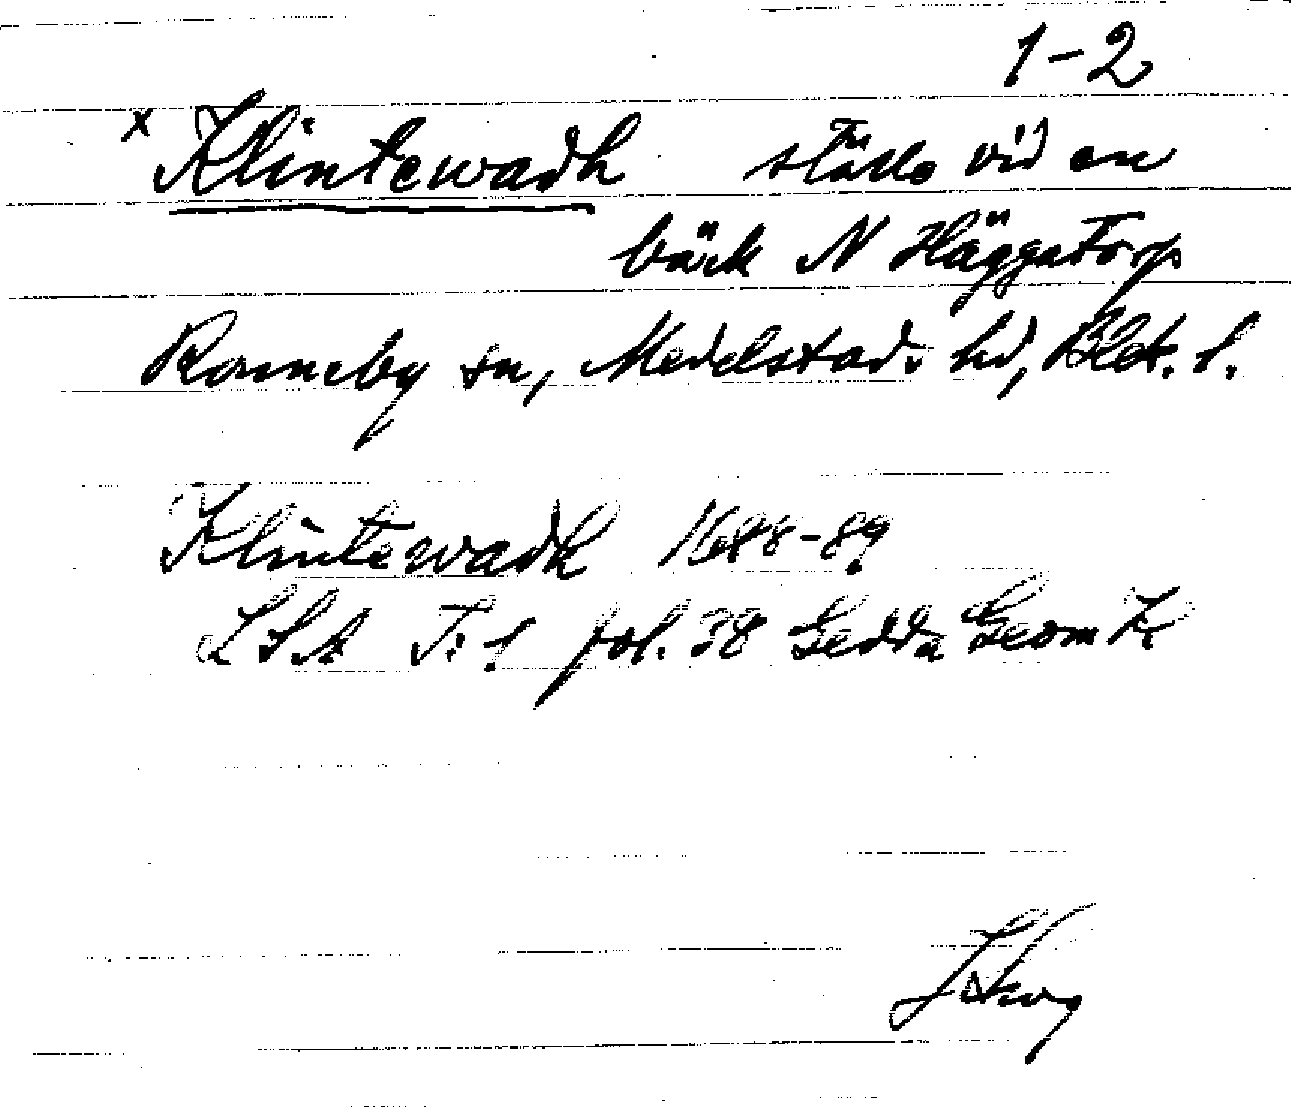 1-2
x Klintewadh ställe vid en
bäck N Häggatorp
Ronneby sn, Medelstads hd, Blek. l.
Klintewadh 1688-89
LSA F:1 fol. 38 Gedda Geom K